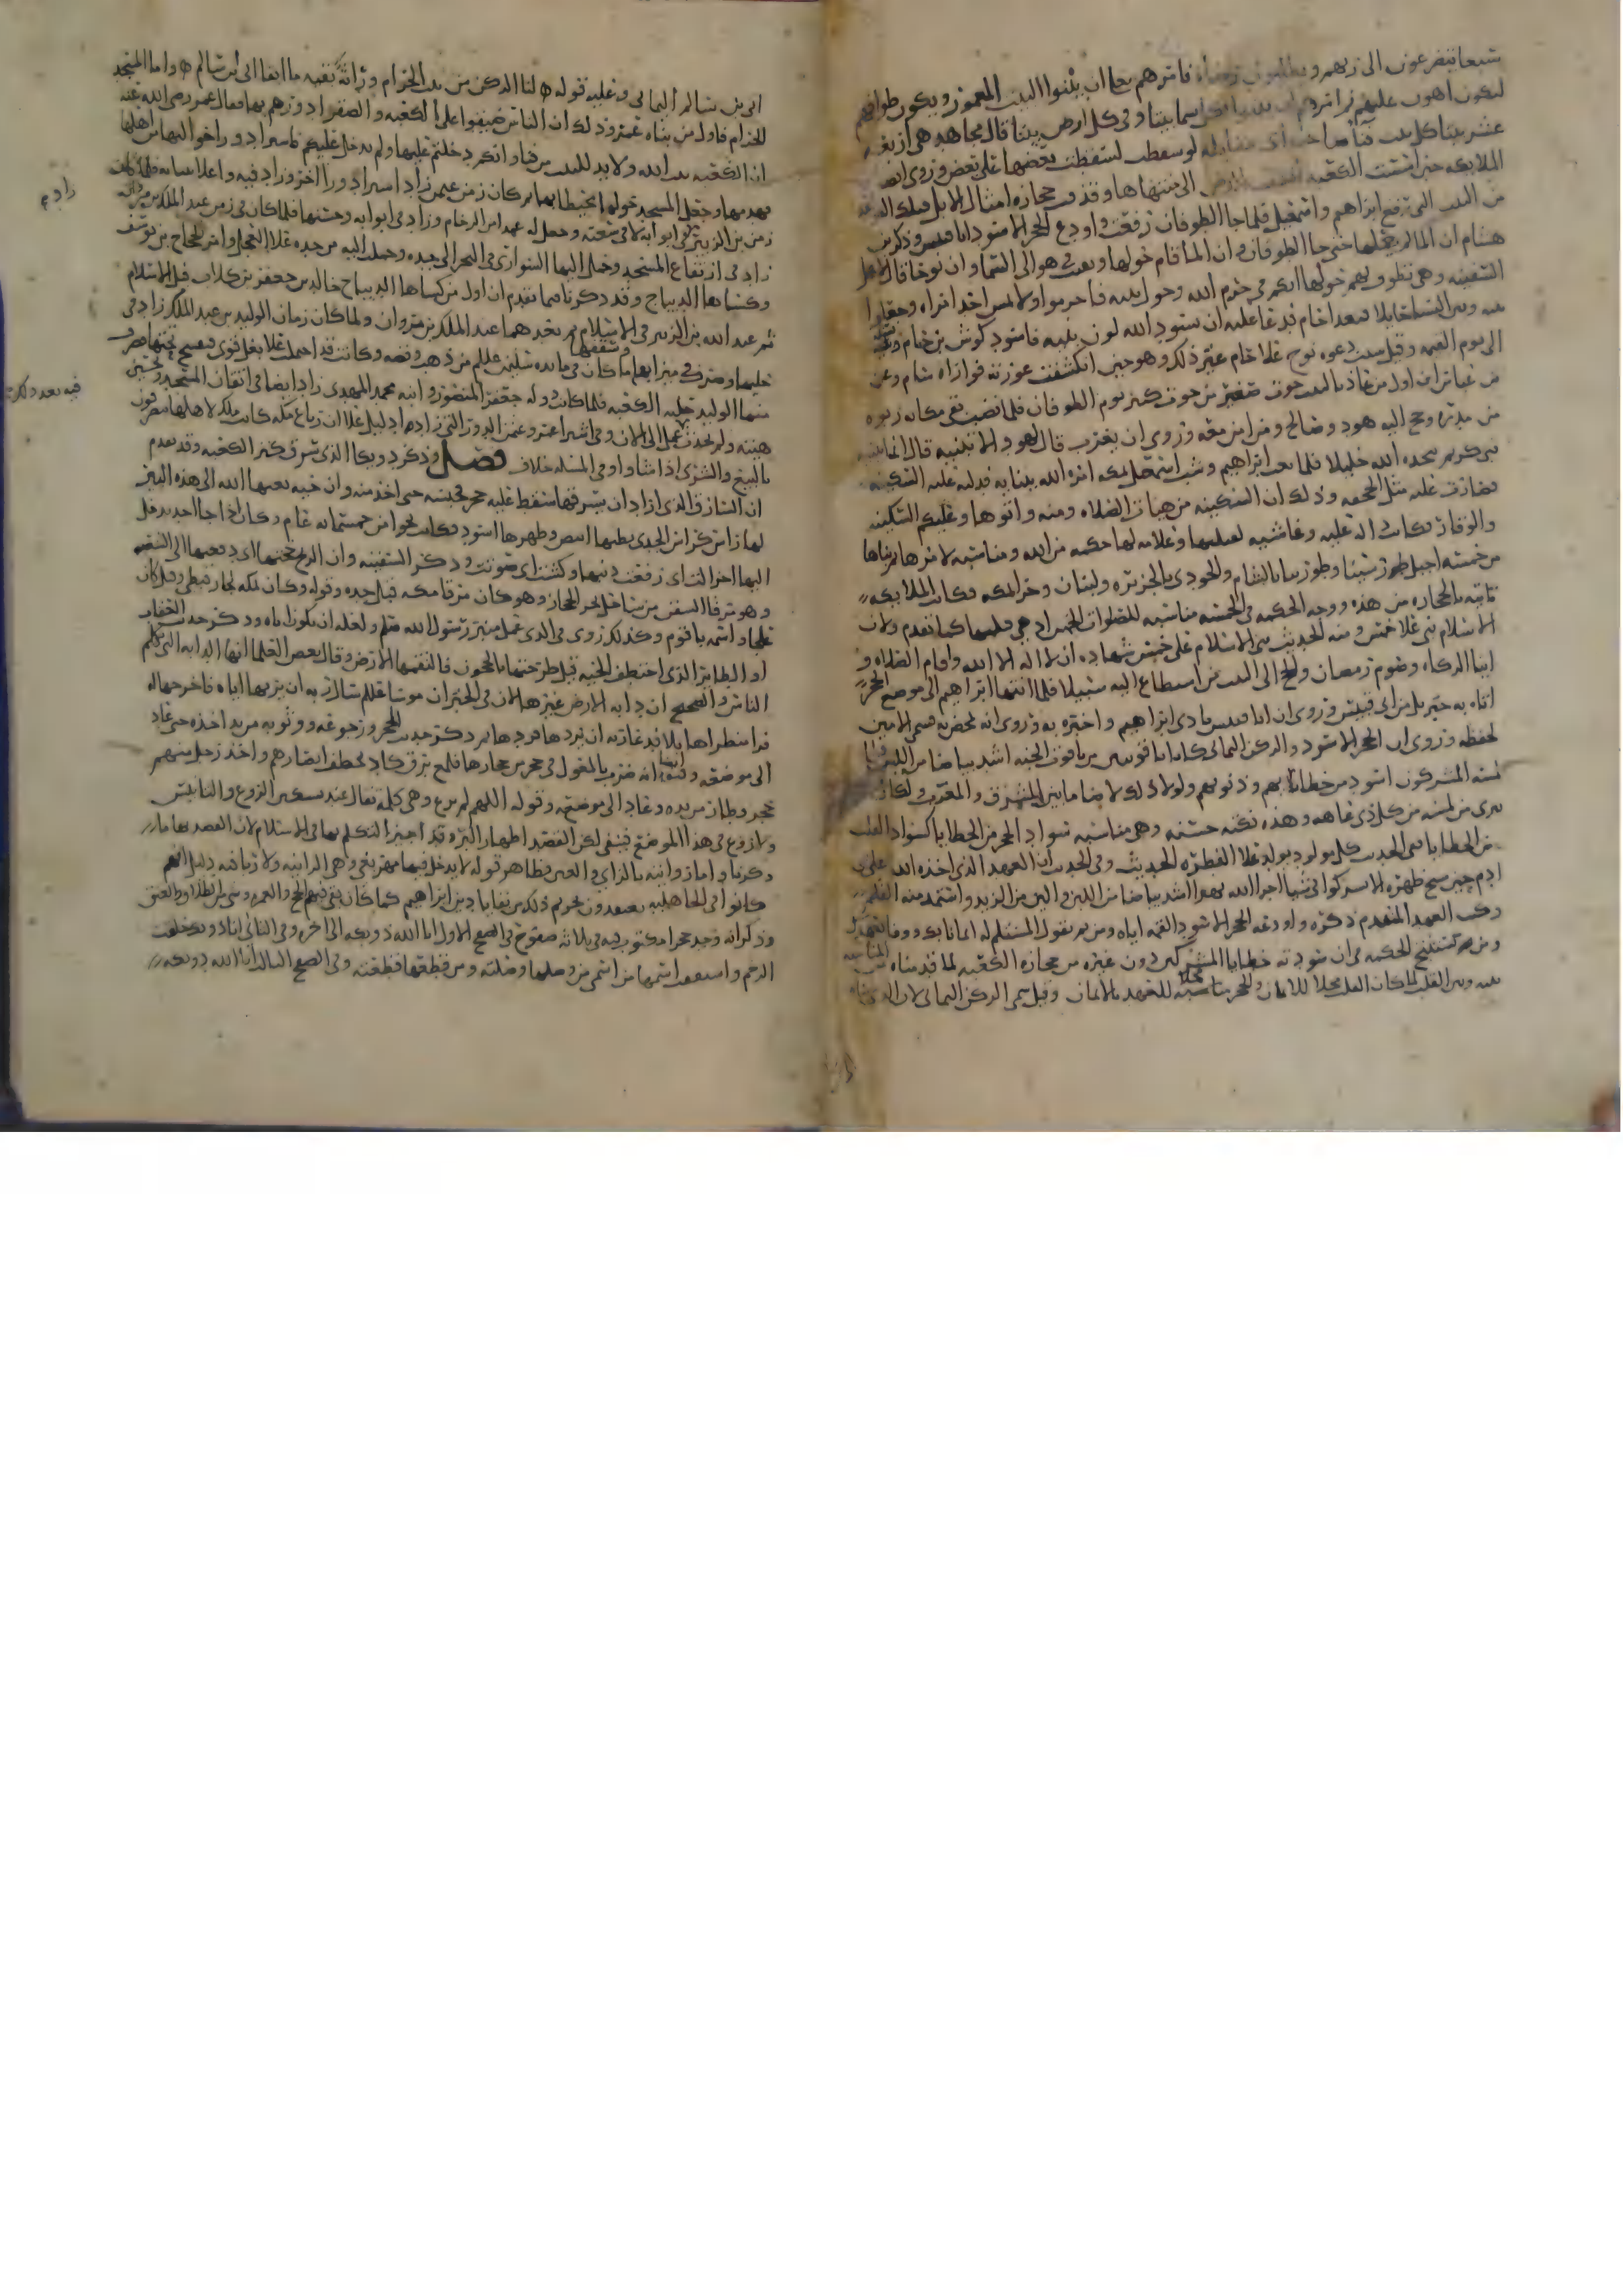 سبعا يتضرعون الى ربهم و فامرهم ان يبنوا البيت المعمور ويكون طوافهم
ليكون اهون عليهم سما بيتا وفي كل ارض بيتا قال مجاهد هي اربعه
عشر بيتا كل بيت لو سقطت لسقطت بعضها على بعض وروي ايضا
الملايكه حين اسست الكعبه الى منتهاها وقذفت حجاره امثال الابل
من البيت التي رفع ابراهيم واسمعيل فلما جا الطوفان رفعت واودع الحجر الاسود ابا قبيس وذكر بن
هشام ان الما لم يعلها حين جا الطوفان وان الما قام حولها وبقيت في هوا الى السما وان نوحا قال لاهل
السفينه وهي تطوف بهم حولها انكم في حرم الله وحول بيته فاحرموا ولا يمس احد امراه وجعل
بينه وبين النسا حايلا فتعدا حام فدعا عليه ان يسود الله لون بنيه فاسود كوش بن حام
الى يوم القيمه وقيل سبب دعوه نوح على حام غير ذلك وهو حين انكشفت عورته فواراه سام وعن
بن عباس ان اول من عاذ بالبيت حوت صغير من حوت كبير يوم الطوفان فلما نضب بقي مكانه ربوه
من مدره وحج اليه هود وصالح ومن امن معه وروي ان يعرب قال لهود الا تبنيه قال انما يبنيه
نبي كريم يتخذه الله خليلا فلما بعث ابراهيم وشب اسمعيل بمكه امره الله ببنايه فدلته عليه السكينه
فصارت عليه مثل الحجفه وذلك ان السكينه من هيات الصلاه ومنه واتوها وعليكم السكينه
والوقار فكانت اله عليه لها حكمه من الله ومناسبه لامرها بناها
من خمسه اجبل طور سينا وطور زيتا بالشام والجودي بالجزيره ولبنان وحرا بمكه وكانت الملايكه
تاتيه بالحجاره من هذه ووجه الحكمه في الخمسه مناسبه للصلوات الخمس كما تقدم ولان
الاسلام بني على خمس ومنه الحديث بني الاسلام على خمس شهاده ان لا اله الا الله واقام الصلاه و
ايتا الزكاه وصوم رمضان والحج الى البيت من استطاع اليه سبيلا فلما انتها ابراهيم الى موضع الحجر
اتاه به جبريل من ابي قبيس وروي ان ابا قبيس نادى ابراهيم واخبره به وروي انه تمخض به فسمي الامين
لحفظه وروي ان الحجر الاسود والركن اليماني كانا ياقوتتين من ياقوت الجنه اشد بياضا من اللبن
لمسه المشركون اسود من خطاياهم وذنوبهم ولولا ذلك لاضا ما بين المشرق والمغرب ولكان
يبرى من لمسه من كل ذي عاهه وهذه نكته حسنه وهي مناسبه سواد الحجر من الخطايا كسواد القلب
من الخطايا ففي الحديث كل مولود يولد على الفطره الحديث وفي الحديث ان العهد الذي اخذه الله على
ادم حين مسح ظهره الا يشركوا في شيا اجرا الله نهرا اشد بياضا من اللبن والين من الزبد واستمد منه القلم
وكتب العهد المتقدم ذكره واودعه الحجر الاسود القمه اياه ومن ثم يقول المستلم له ايمانا بك ووفا بعهدك
ومن ثم تستنتج الحكمه في ان سودته خطايا المشركين دون غيره من حجاره الكعبه لما قدمناه من المناسبه
بينه وبين القلب لما كان القلب محلا للايمان والحجر مناسبه محلا للعهد بالايمان وقيل سمي الركن اليماني لان الذي بناه
ابي بن سالم اليماني وعليه قوله لنا الركن من بيت الحرام وراثه بقيه ما ابقا ابي بن سالم واما المسجد
الحرام فاول من بناه عمر وذلك ان الناس ضيقوا على الكعبه والصقوا دورهم بها فقال عمر رضي الله عنه
ان الكعبه بيت الله ولا بد للبيت من فنا وانكم دخلتم عليها ولم يدخل عليكم فاشترا دورا اخر اليها من اهلها
فهدمها وجعل المسجد حولها محيطا بها ثم كان زمن عثمن زاد اشترا دورا اخر وزاد فيه واعلا بنيانه فلما كان
زمن بن الزبير في ابوابه لا في سعته وجعل له عمدا من الرخام وزاد في ابوابه وحسنها فلما كان في زمن عبد الملك بن مروان
زاد في ارتفاع المسجد وحمل اليها السواري في البحر الى جده وحملت اليه من جده على العجل وامر الحجاج بن يوسف
وكساها الديباج وقد ذكرنا فيما تقدم ان اول من كساها الديباج خالد بن جعفر بن كلاب قبل الاسلام
ثم عبد الله بن الزبير في الاسلام ثم بعدهما عبد الملك بن مروان ولما كان زمان الوليد بن عبد الملك زاد في
حليها وصرف في ميزابها وسقفها ما كان في مايده سليمن عليلم من ذهب وفضه وكانت قد احتملت على بغل قوي فتفسخ تحتها فضرب
منها الوليد حليه الكعبه فلما كانت دوله جعفر المنصور وابنه محمد المهدي زاد ايضا في اتقان المسجد وتحسين
هيئته ولم تحدث عمل الى الان وفي اشترا عمر وعثمن الدور التي زادها دليل على ان رباع مكه كانت ملك لاهلها يتصرفون
بالبيع والشرى اذا شاوا وفي المسله خلاف فصل وذكر دويكا الذي سرق كنز الكعبه وقد تقدم
ان السارق الذي اراد ان يسرقها سقط عليه حجر فحبسه حتى اخذ منه وان حيه بعثها الله الى هذه البير
لها راس كراس الجدي بطنها ابيض وظهرها اسود فكانت نحوا من خمسمايه عام وكان اذا جا احد بدخل
اليها احزالت اي رفعت ذنبها وكشت اي صوتت وذكر السفينه وان الريح اي دفعتها الى الشعيبه
وهو مرفا السفن من ساحل بحر الحجاز وهو كان مرفا مكه قبل جده وقوله وكان بمكه نجار قبطي وقيل كان
علجا واسمه باقوم وكذلك روي في الذي عمل منبر رسول الله صلم ولعله ان يكون اياه وذكر حديث العقاب
او الطاير الذي اختطف الحيه قيل طرحتها بالحجون فالتقمتها الارض وقال بعض العلما انها الدابه التي تكلم
الناس والصحيح ان دابه الارض غيرها لان في الخبر ان موسا عليلم سال ربه ان يريها اياه فاخرجها له
فرا منظرا هايلا فدعا ربه ان يردها فردها ثم ذكر حديث الحجر ورجوعه ووثوبه من يد اخذه حتى عاد
الى موضعه وفيه ايضا انه ضرب بالمعول في حجر من حجارها فلمع برق كاد يخطف ابصارهم واخذ رجل منهم
حجر وطار من يده وعاد الى موضعه وقوله اللهم لم نرع وهي كلمه تقال عند تسكين الروع والتانيس
ولا روع في هذا الموضع فينفى لكن القصد اظهار البره قد اجيز التكلم بها في الاسلام لان القصد بها ما
ذكرنا وظاهر قوله لا يدخل فيها مهر بغي وهي الزانيه ولا ربا فيه دليل انهم
كانوا في الجاهليه يعتقدون تحريم ذلك من بقايا دين ابراهيم كما كان بقي فيهم الحج والعمره وشي من الطلاق والعتق
وذكر انه وجد حجرا مكتوب فيه ثلاثه صفوح في الصفح الاول انا الله ذو بكه الى اخره وفي الثاني انا ذو بكه خلقت
الرحم واشتققت اسمها من اسمي من وصلها وصلته ومن قطعها قطعته وفي الصفح الثالث انا الله ذو بكه
زادهم
فيه بعد ذلك